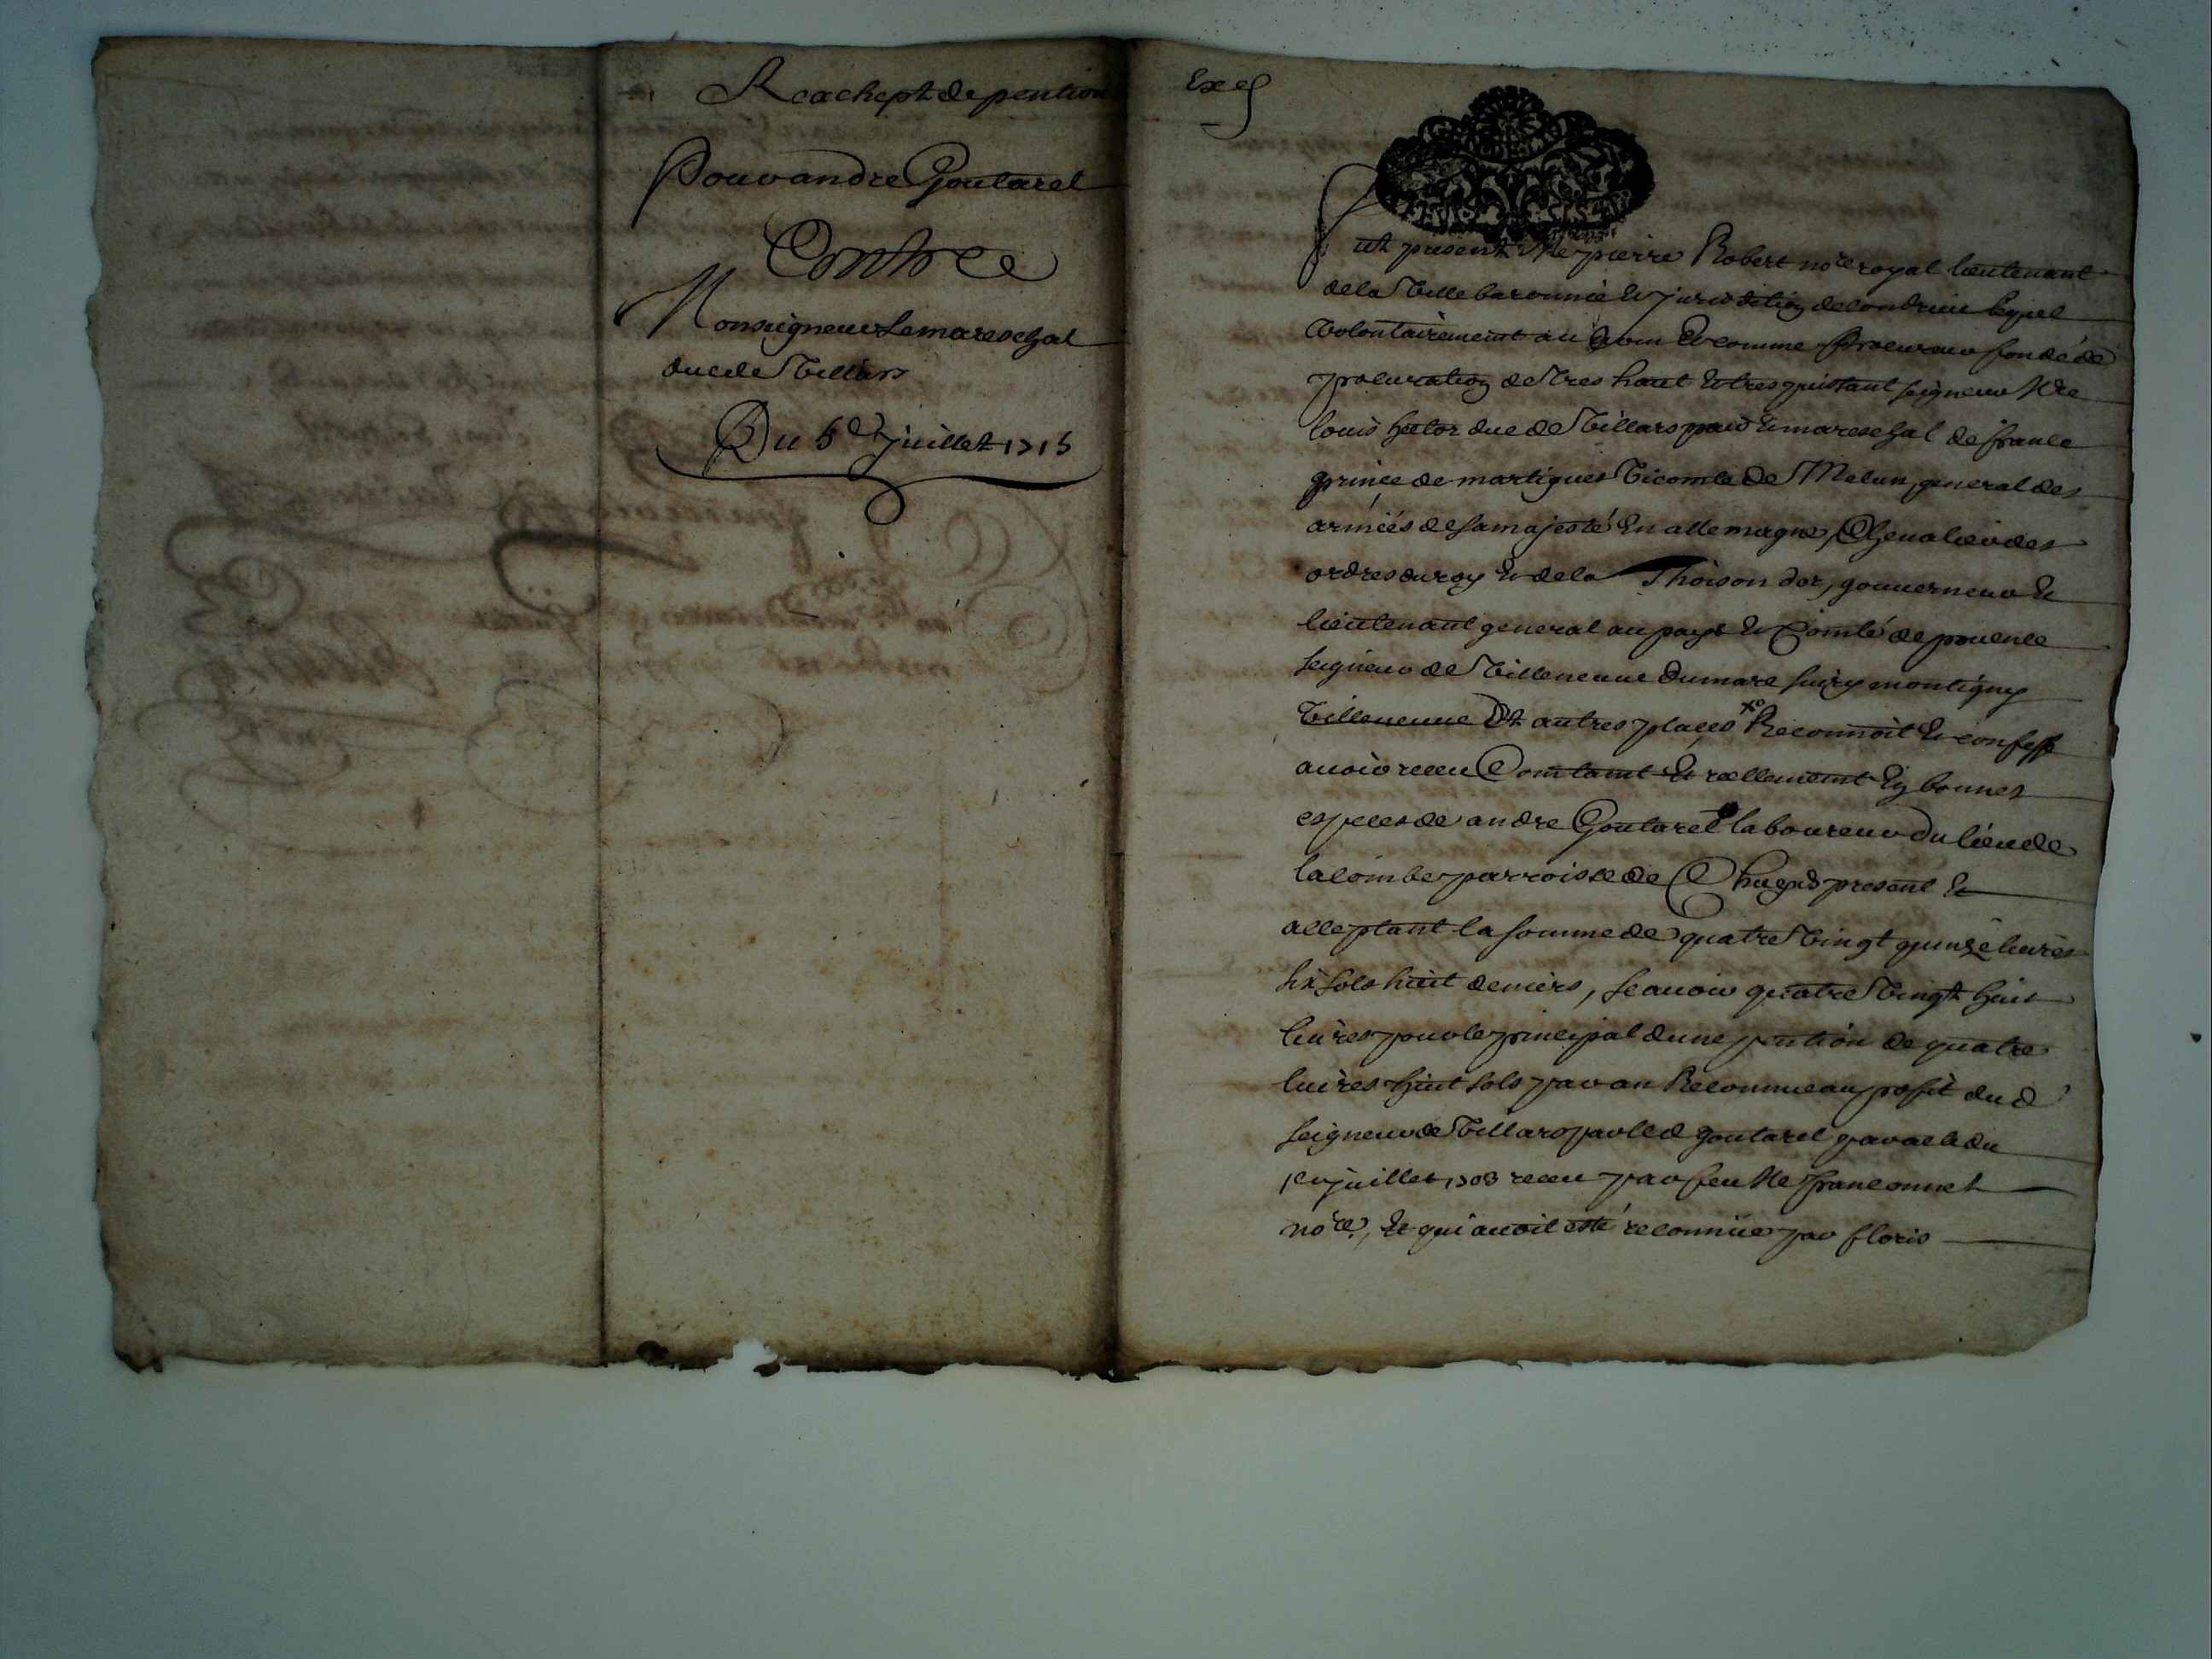 Reachept de pention
Pour andre Goutarel
Contre
Monseigneur Le mareschal
duc de Villars
Du 5e juillet 1715
Exeg
Fut present Me pierre Robert nore royal lieutenant
de la Ville baronnie et jurisdition de condrieu lequel
Volontairement au nom et comme procureur fondé de
procuration de tres haut et tres puissant seigneur Mre
louis hector duc de Villars pair et mareschal de france
prince de martigues Vicomte de Melun, general des
armées de sa majesté en allemagne, Chevalier des
ordres du roy et de la Thoison dor, gouverneur et
lieutenant general au pays et Comté de provence
seigneur de Villeneuve dumare
Villeneuve Et autres places xo Reconnoit et confesse
avoir receu Comtant et reellement en bonnes
especes de andre Goutarel laboureur du lieu de
la combe parroisse de present et
acceptant la somme de quatre Vingt quinze livres
six sols huit deniers, scavoir quatre Vingt huit
livres pour le principal dune pention de quatre
livres huit sols par an Reconnue au profit dud
seigneur de Villars par led goutarel par acte du
juillet 1703 receu par feu Me franconnet
nore, et qui avoit esté reconnüe par floris